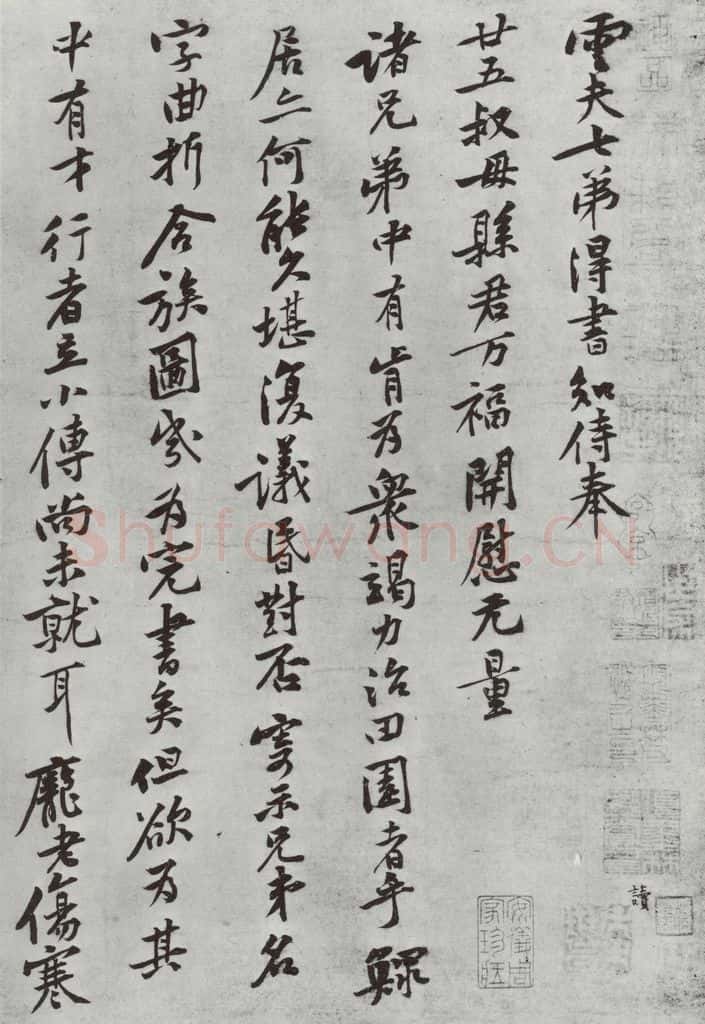 雲夫七弟得書知侍奉
廿五叔母縣君万福開慰无量
諸兄弟中有肯為衆竭力治田園者乎鰥
居亦何能久堪復議昏對否寄示兄弟名
字曲折合族圖岁为完書矣但欲为其
中有才行者立小傳尚未就耳龐老傷寒
讀
安儀周家珍藏
Shufawang.CN